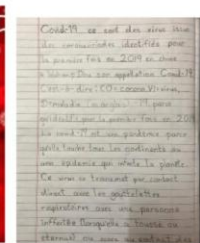 Covid-19 ce sont des virus issue
des coronavirides identifiés pour
la première fois en 2019 en chine
à Wuhan D'ou son appellation Covid-19
C'est-à-dire : CO = corona VI = virus,
D = maladie 19 parce
première fois en 2019
Le covid-19 est une pandémie parce
qu'elle touche tous les continents ou
une épidémie qui infecte la planète.
Ce virus se transmet par contact
direct avec les gouttelettes
respiratoires avec une personne
infectée lorsqu'elle tousse ou
éternue ou avec